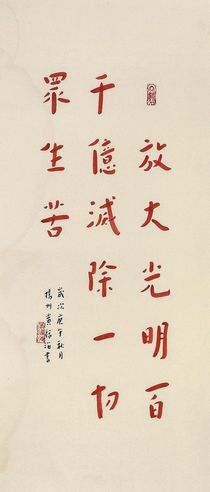 放大光明百
千億滅除一切
眾生苦
歲次庚午秋月